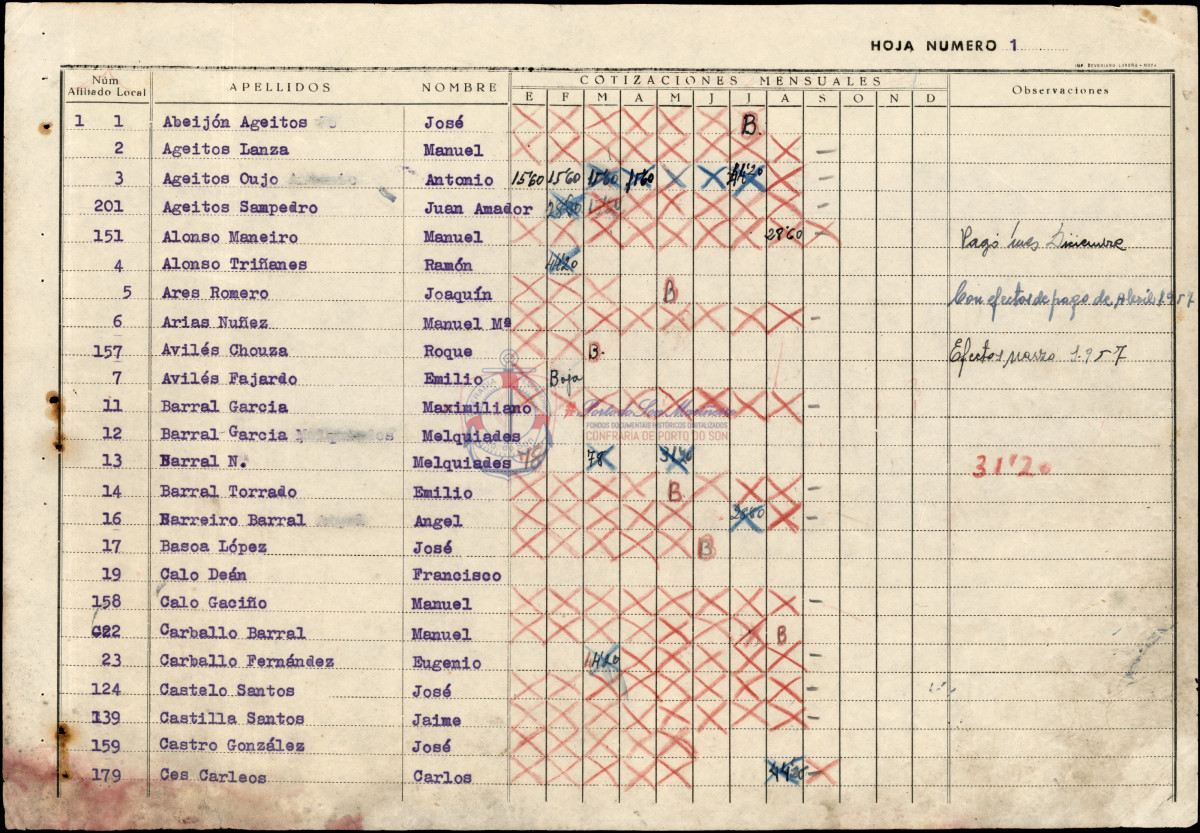 HOJA NUMERO 1
Núm Afiliado Local APELLIDOS NOMBRE COTIZACIONES MENSUALES Observaciones
E F M A M J J A S O N D
1 1 Abeijón Ageitos José B.
2 Ageitos Lanza Manuel –
3 Ageitos Oujo Antonio 15'60 15'60 15'60 15'60 44'20 –
201 Ageitos Sampedro Juan Amador –
151 Alonso Maneiro Manuel 28'60 – Pagó mes Diciembre
4 Alonso Triñanes Ramón 44'20
5 Ares Romero Joaquín B Con efectos de pago de Abril 1957
6 Arias Nuñez Manuel Mª –
157 Avilés Chouza Roque B. Efectos marzo 1.957
7 Avilés Fajardo Emilio Baja
11 Barral Garcia Maximiliano –
12 Barral Garcia Melquiades
13 Barral N. Melquiades 78 78 31'20 31'20
14 Barral Torrado Emilio B –
16 Barreiro Barral Angel 28'60 –
17 Basoa López José B
19 Calo Deán Francisco
158 Calo Gaciño Manuel –
22 Carballo Barral Manuel B
23 Carballo Fernández Eugenio –
124 Castelo Santos José –
139 Castilla Santos Jaime –
159 Castro González José
179 Ces Carleos Carlos 44'20 –
Porto do Son Mariñeiro
FONDOS DOCUMENTAIS HISTÓRICOS DIGITALIZADOS
CONFRARÍA DE PORTO DO SON